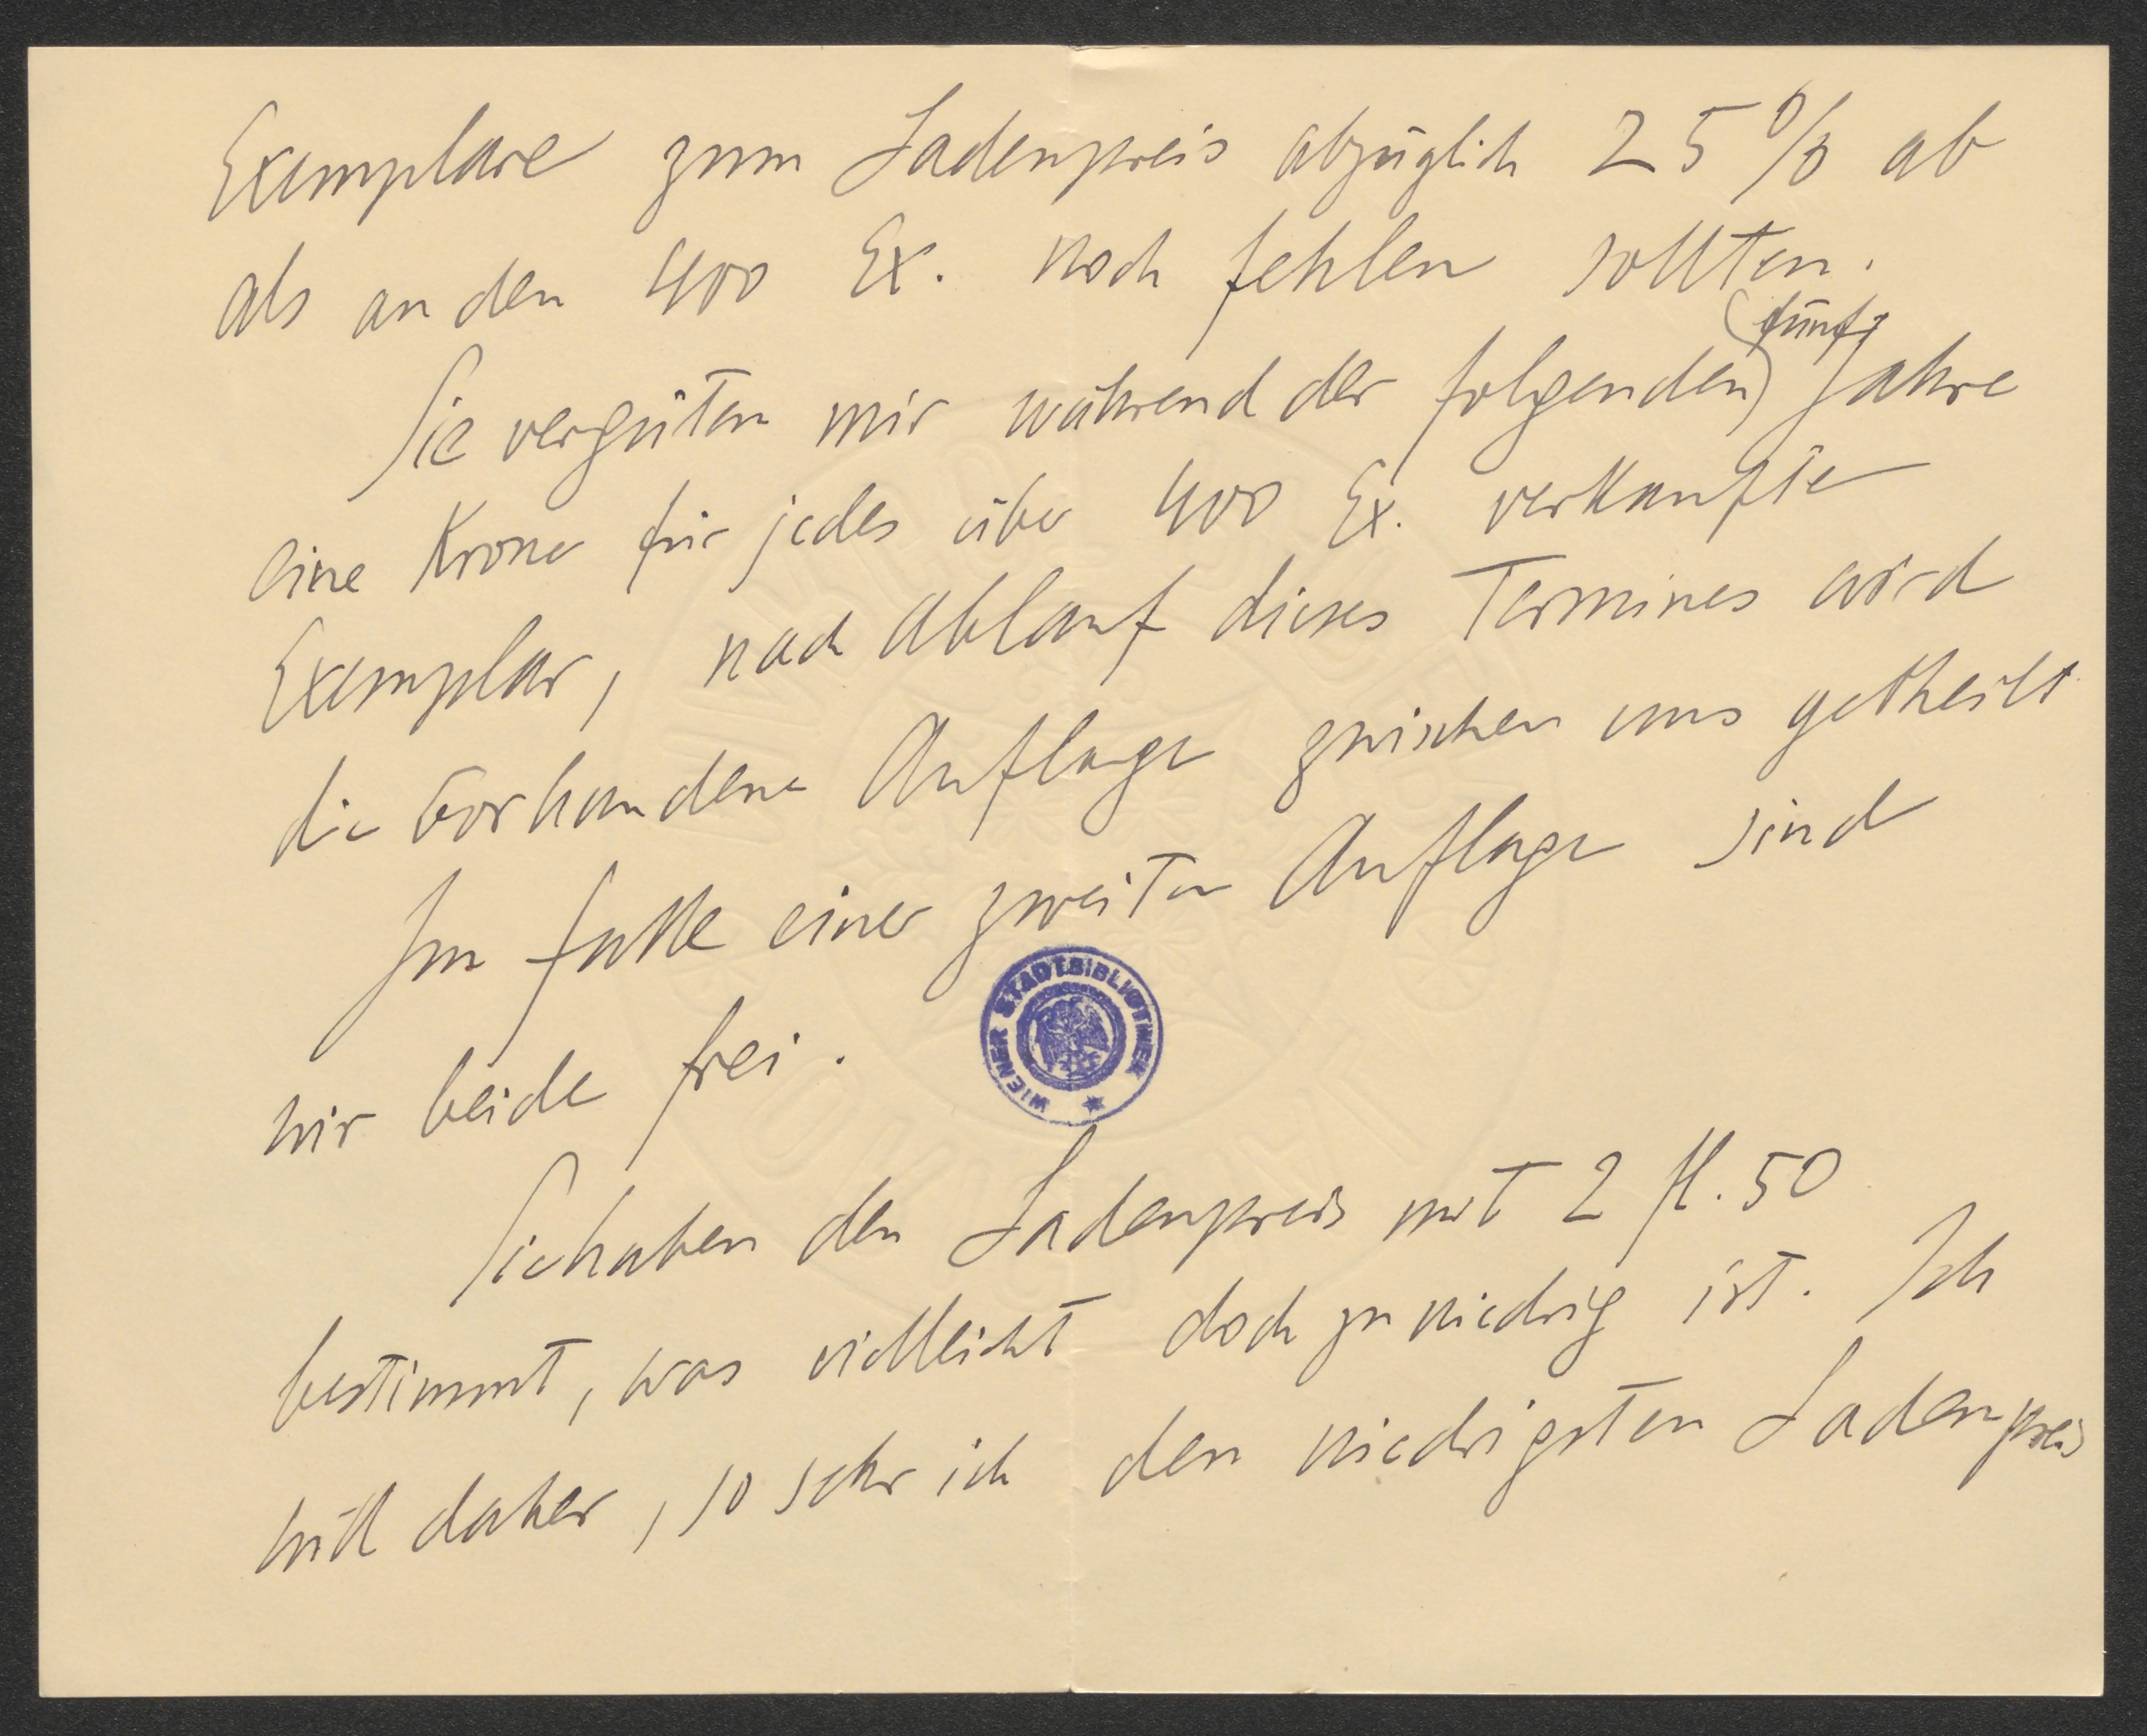 Exemplare zum Ladenpreis abzüglich 25% ab
als an den 400 Ex. noch fehlen sollten.
fünf
Sie vergüten mir während der folgenden Jahre
eine Krone für jedes über 400 Ex. verkaufte
Exemplar, nach Ablauf dieses Termines wird
die vorhandene Auflage zwischen uns getheilt
Im Falle einer zweiten Auflage sind
wir beide frei.
WIENER STADTBIBLIOTHEK
Sie haben den Ladenpreis mit 2 fl. 50
bestimmt, was vielleicht doch zu niedrig ist. Ich
will daher, so sehr ich den niedrigsten Ladenpreis